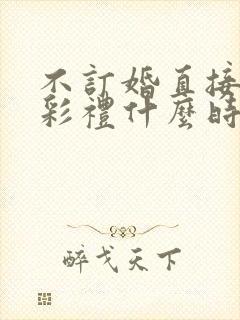 不訂婚直接
彩禮什麼時
醉戈天下